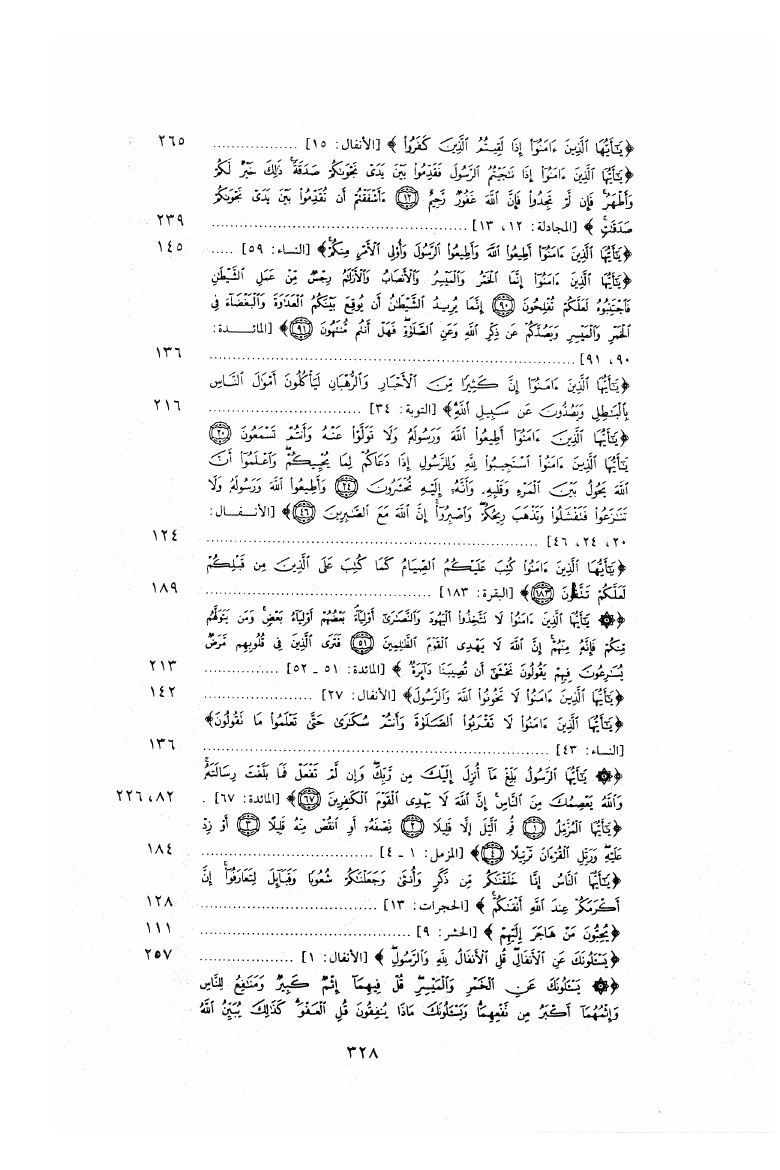 ﴿يَٰٓأَيُّهَا ٱلَّذِينَ ءَامَنُوٓا۟ إِذَا لَقِيتُمُ ٱلَّذِينَ كَفَرُوا۟ ﴾ [الأنفال: ١٥] ................. ٢٦٥
﴿يَٰٓأَيُّهَا ٱلَّذِينَ ءَامَنُوٓا۟ إِذَا نَٰجَيْتُمُ ٱلرَّسُولَ فَقَدِّمُوا۟ بَيْنَ يَدَىْ نَجْوَىٰكُمْ صَدَقَةً ۚ ذَٰلِكَ خَيْرٌ لَّكُمْ
وَأَطْهَرُ ۚ فَإِن لَّمْ تَجِدُوا۟ فَإِنَّ ٱللَّهَ غَفُورٌ رَّحِيمٌ ﴿١٢﴾ ءَأَشْفَقْتُمْ أَن تُقَدِّمُوا۟ بَيْنَ يَدَىْ نَجْوَىٰكُمْ
صَدَقَٰتٍ ۚ ﴾ [المجادلة: ١٢، ١٣] ................. ٢٣٩
﴿يَٰٓأَيُّهَا ٱلَّذِينَ ءَامَنُوٓا۟ أَطِيعُوا۟ ٱللَّهَ وَأَطِيعُوا۟ ٱلرَّسُولَ وَأُو۟لِى ٱلْأَمْرِ مِنكُمْ ۖ﴾ [النساء: ٥٩] ..... ١٤٥
﴿يَٰٓأَيُّهَا ٱلَّذِينَ ءَامَنُوٓا۟ إِنَّمَا ٱلْخَمْرُ وَٱلْمَيْسِرُ وَٱلْأَنصَابُ وَٱلْأَزْلَٰمُ رِجْسٌ مِّنْ عَمَلِ ٱلشَّيْطَٰنِ
فَٱجْتَنِبُوهُ لَعَلَّكُمْ تُفْلِحُونَ ﴿٩٠﴾ إِنَّمَا يُرِيدُ ٱلشَّيْطَٰنُ أَن يُوقِعَ بَيْنَكُمُ ٱلْعَدَٰوَةَ وَٱلْبَغْضَآءَ فِى
ٱلْخَمْرِ وَٱلْمَيْسِرِ وَيَصُدَّكُمْ عَن ذِكْرِ ٱللَّهِ وَعَنِ ٱلصَّلَوٰةِ ۖ فَهَلْ أَنتُم مُّنتَهُونَ ﴿٩١﴾﴾ [المائدة:
٩٠، ٩١] ................. ١٣٦
﴿يَٰٓأَيُّهَا ٱلَّذِينَ ءَامَنُوٓا۟ إِنَّ كَثِيرًا مِّنَ ٱلْأَحْبَارِ وَٱلرُّهْبَانِ لَيَأْكُلُونَ أَمْوَٰلَ ٱلنَّاسِ
بِٱلْبَٰطِلِ وَيَصُدُّونَ عَن سَبِيلِ ٱللَّهِ ۗ﴾ [التوبة: ٣٤] ................. ٢١٦
﴿يَٰٓأَيُّهَا ٱلَّذِينَ ءَامَنُوٓا۟ أَطِيعُوا۟ ٱللَّهَ وَرَسُولَهُۥ وَلَا تَوَلَّوْا۟ عَنْهُ وَأَنتُمْ تَسْمَعُونَ ﴿٢٠﴾
يَٰٓأَيُّهَا ٱلَّذِينَ ءَامَنُوا۟ ٱسْتَجِيبُوا۟ لِلَّهِ وَلِلرَّسُولِ إِذَا دَعَاكُمْ لِمَا يُحْيِيكُمْ ۖ وَٱعْلَمُوٓا۟ أَنَّ
ٱللَّهَ يَحُولُ بَيْنَ ٱلْمَرْءِ وَقَلْبِهِۦ وَأَنَّهُۥٓ إِلَيْهِ تُحْشَرُونَ ﴿٢٤﴾ وَأَطِيعُوا۟ ٱللَّهَ وَرَسُولَهُۥ وَلَا
تَنَٰزَعُوا۟ فَتَفْشَلُوا۟ وَتَذْهَبَ رِيحُكُمْ ۖ وَٱصْبِرُوٓا۟ ۚ إِنَّ ٱللَّهَ مَعَ ٱلصَّٰبِرِينَ ﴿٤٦﴾﴾ [الأنفال:
٢٠، ٢٤، ٤٦] ................. ١٢٤
﴿يَٰٓأَيُّهَا ٱلَّذِينَ ءَامَنُوا۟ كُتِبَ عَلَيْكُمُ ٱلصِّيَامُ كَمَا كُتِبَ عَلَى ٱلَّذِينَ مِن قَبْلِكُمْ
لَعَلَّكُمْ تَتَّقُونَ ﴿١٨٣﴾﴾ [البقرة: ١٨٣] ................. ١٨٩
﴿۞ يَٰٓأَيُّهَا ٱلَّذِينَ ءَامَنُوا۟ لَا تَتَّخِذُوا۟ ٱلْيَهُودَ وَٱلنَّصَٰرَىٰٓ أَوْلِيَآءَ ۘ بَعْضُهُمْ أَوْلِيَآءُ بَعْضٍ ۚ وَمَن يَتَوَلَّهُم
مِّنكُمْ فَإِنَّهُۥ مِنْهُمْ ۗ إِنَّ ٱللَّهَ لَا يَهْدِى ٱلْقَوْمَ ٱلظَّٰلِمِينَ ﴿٥١﴾ فَتَرَى ٱلَّذِينَ فِى قُلُوبِهِم مَّرَضٌ
يُسَٰرِعُونَ فِيهِمْ يَقُولُونَ نَخْشَىٰٓ أَن تُصِيبَنَا دَآئِرَةٌ ۚ ﴾ [المائدة: ٥١ ـ ٥٢] ................. ٢١٣
﴿يَٰٓأَيُّهَا ٱلَّذِينَ ءَامَنُوا۟ لَا تَخُونُوا۟ ٱللَّهَ وَٱلرَّسُولَ﴾ [الأنفال: ٢٧] ................. ١٤٢
﴿يَٰٓأَيُّهَا ٱلَّذِينَ ءَامَنُوا۟ لَا تَقْرَبُوا۟ ٱلصَّلَوٰةَ وَأَنتُمْ سُكَٰرَىٰ حَتَّىٰ تَعْلَمُوا۟ مَا تَقُولُونَ﴾
[النساء: ٤٣] ................. ١٣٦
﴿۞ يَٰٓأَيُّهَا ٱلرَّسُولُ بَلِّغْ مَآ أُنزِلَ إِلَيْكَ مِن رَّبِّكَ ۖ وَإِن لَّمْ تَفْعَلْ فَمَا بَلَّغْتَ رِسَالَتَهُۥ ۚ
وَٱللَّهُ يَعْصِمُكَ مِنَ ٱلنَّاسِ ۗ إِنَّ ٱللَّهَ لَا يَهْدِى ٱلْقَوْمَ ٱلْكَٰفِرِينَ ﴿٦٧﴾﴾ [المائدة: ٦٧] . ٨٢، ٢٢٦
﴿يَٰٓأَيُّهَا ٱلْمُزَّمِّلُ ﴿١﴾ قُمِ ٱلَّيْلَ إِلَّا قَلِيلًا ﴿٢﴾ نِّصْفَهُۥٓ أَوِ ٱنقُصْ مِنْهُ قَلِيلًا ﴿٣﴾ أَوْ زِدْ
عَلَيْهِ وَرَتِّلِ ٱلْقُرْءَانَ تَرْتِيلًا ﴿٤﴾﴾ [المزمل: ١ ـ ٤] ................. ١٨٤
﴿يَٰٓأَيُّهَا ٱلنَّاسُ إِنَّا خَلَقْنَٰكُم مِّن ذَكَرٍ وَأُنثَىٰ وَجَعَلْنَٰكُمْ شُعُوبًا وَقَبَآئِلَ لِتَعَارَفُوٓا۟ ۚ إِنَّ
أَكْرَمَكُمْ عِندَ ٱللَّهِ أَتْقَىٰكُمْ ۚ ﴾ [الحجرات: ١٣] ................. ١٢٨
﴿يُحِبُّونَ مَنْ هَاجَرَ إِلَيْهِمْ ﴾ [الحشر: ٩] ................. ١١١
﴿يَسْـَٔلُونَكَ عَنِ ٱلْأَنفَالِ ۖ قُلِ ٱلْأَنفَالُ لِلَّهِ وَٱلرَّسُولِ ۖ ﴾ [الأنفال: ١] ................. ٢٥٧
﴿۞ يَسْـَٔلُونَكَ عَنِ ٱلْخَمْرِ وَٱلْمَيْسِرِ ۖ قُلْ فِيهِمَآ إِثْمٌ كَبِيرٌ وَمَنَٰفِعُ لِلنَّاسِ
وَإِثْمُهُمَآ أَكْبَرُ مِن نَّفْعِهِمَا ۗ وَيَسْـَٔلُونَكَ مَاذَا يُنفِقُونَ قُلِ ٱلْعَفْوَ ۗ كَذَٰلِكَ يُبَيِّنُ ٱللَّهُ
٣٢٨